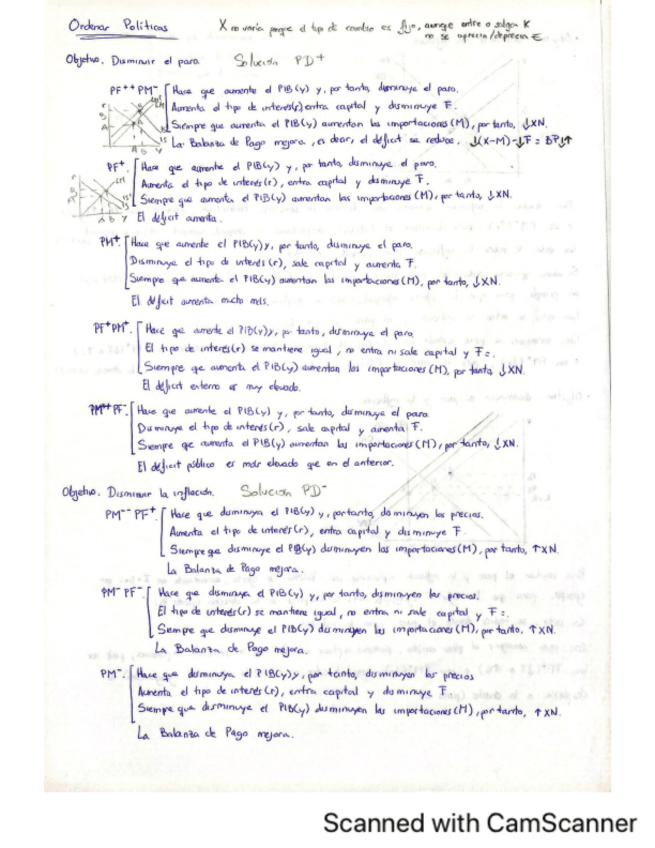 Ordenar Políticas
X no varía porque el tipo de cambio es fijo, aunque entre o salga K
no se aprecia/deprecia €
Objetivo. Disminuir el paro. Solución PD+
PF++ PM- Hace que aumente el PIB(y) y, por tanto, disminuye el paro.
Aumenta el tipo de interés(r) entra capital y disminuye F.
Siempre que aumenta el PIB(y) aumentan las importaciones (M), por tanto, ↓XN.
La Balanza de Pago mejora, es decir, el déficit se reduce. ↓(X-M)-↓F = BP↓↑
PF+. Hace que aumente el PIB(y) y, por tanto, disminuye el paro.
Aumenta el tipo de interés (r), entra capital y disminuye F.
Siempre que aumenta el PIB(y) aumentan las importaciones (M), por tanto, ↓XN.
El déficit aumenta.
PM+. Hace que aumente el PIB(y)y, por tanto, disminuye el paro.
Disminuye el tipo de interés (r), sale capital y aumenta F.
Siempre que aumenta el PIB(y) aumentan las importaciones (M), por tanto, ↓XN.
El déficit aumenta mucho más.
PF+PM+. Hace que aumente el PIB(y)y, por tanto, disminuye el paro
El tipo de interés(r) se mantiene igual, no entra ni sale capital y F=.
Siempre que aumenta el PIB(y) aumentan las importaciones (M), por tanto ↓XN.
El déficit externo es muy elevado.
PM++PF-. Hace que aumente el PIB(y) y, por tanto, disminuye el paro
Disminuye el tipo de interés(r), sale capital y aumenta F.
Siempre que aumenta el PIB(y) aumentan las importaciones (M), por tanto, ↓XN.
El déficit público es más elevado que en el anterior.
Objetivo. Disminuir la inflación. Solución PD-
PM-- PF+. Hace que disminuya el PIB(y) y, por tanto, disminuyen los precios.
Aumenta el tipo de interés(r), entra capital y disminuye F.
Siempre que disminuye el PIB(y) disminuyen las importaciones(M), por tanto, ↑XN.
La Balanza de Pago mejora.
PM- PF-. Hace que disminuya el PIB(y) y, por tanto, disminuyen los precios.
El tipo de interés(r) se mantiene igual, no entra ni sale capital y F=.
Siempre que disminuye el PIB(y) disminuyen las importaciones (M), por tanto, ↑XN.
La Balanza de Pago mejora.
PM-. Hace que disminuya el PIB(y)y, por tanto, disminuyen los precios
Aumenta el tipo de interés (r), entra capital y disminuye F
Siempre que disminuye el PIB(y) disminuyen las importaciones(M), por tanto, ↑XN.
La Balanza de Pago mejora.
Scanned with CamScanner